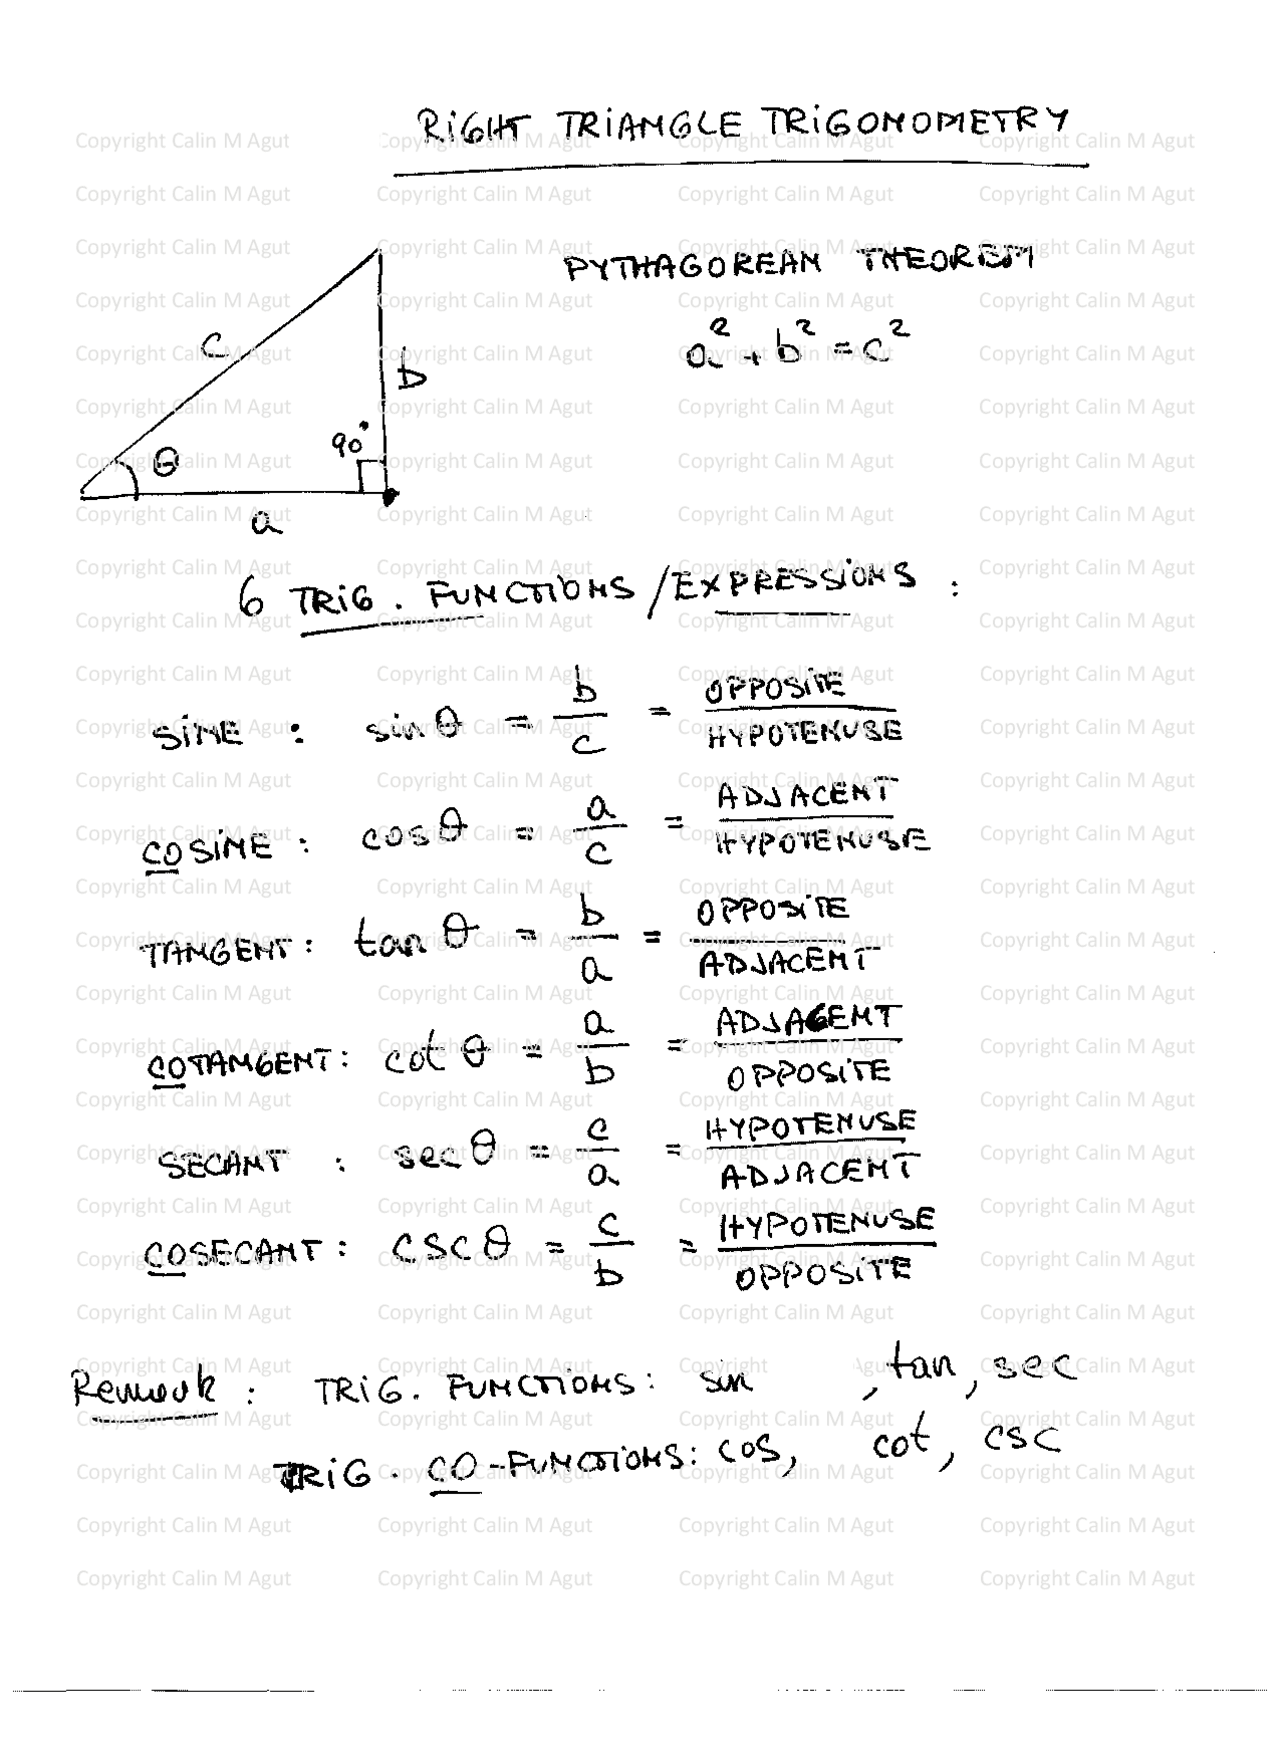 RIGHT TRIANGLE TRIGONOMETRY
PYTHAGOREAN THEOREM
a² + b² = c²
c
b
90°
θ
a
6 TRIG. FUNCTIONS / EXPRESSIONS :
SINE : sin θ = b/c = OPPOSITE/HYPOTENUSE
COSINE : cos θ = a/c = ADJACENT/HYPOTENUSE
TANGENT : tan θ = b/a = OPPOSITE/ADJACENT
COTANGENT : cot θ = a/b = ADJACENT/OPPOSITE
SECANT : sec θ = c/a = HYPOTENUSE/ADJACENT
COSECANT : csc θ = c/b = HYPOTENUSE/OPPOSITE
Remark : TRIG. FUNCTIONS : sin , tan, sec
TRIG. CO-FUNCTIONS: cos, cot, csc
Copyright Calin M Agut